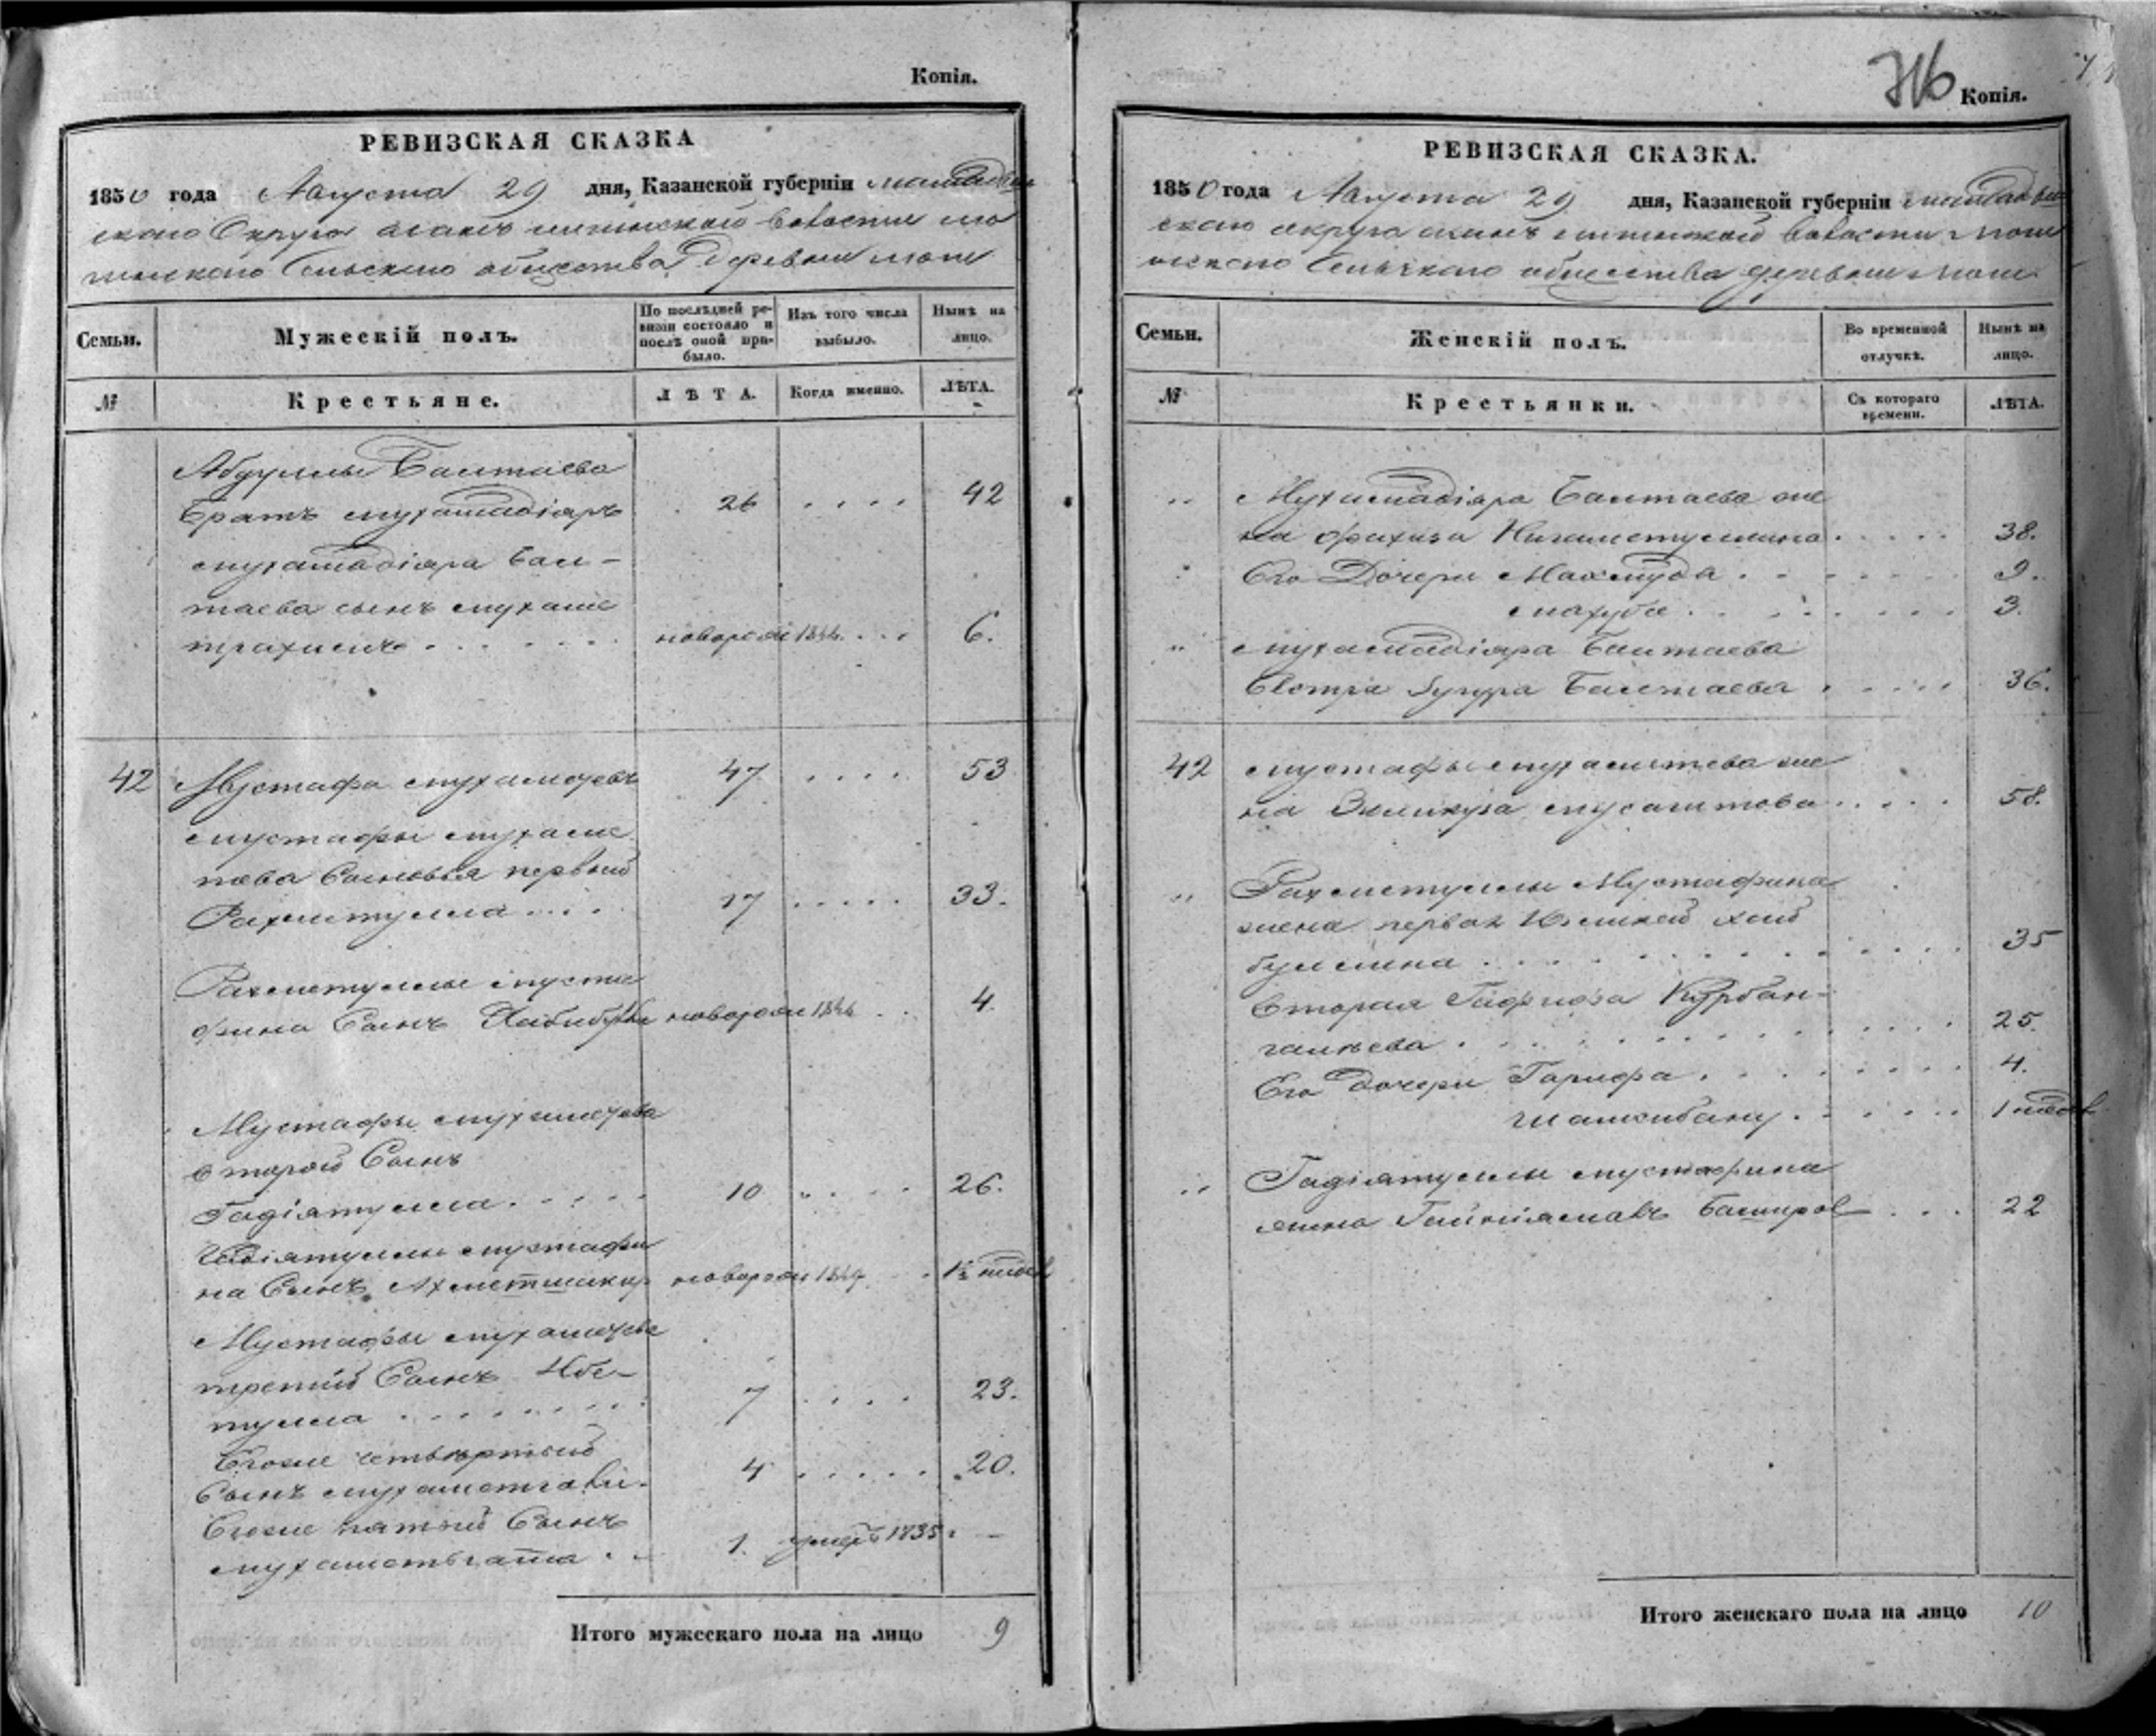 Копія.
РЕВИЗСКАЯ СКАЗКА
1850 года Августа 29 дня, Казанской губерніи мамадыш
скаго Округа волости
Сельскаго общества Деревни
Семьи.
Мужескій полъ.
По послѣдней ре-
визіи состояло и
послѣ оной при-
было.
Изъ того числа
выбыло.
Нынѣ на
лицо.
№
Крестьяне.
ЛѢТА.
Когда именно.
ЛѢТА.
Абдуллы Балтаева
Братъ мухамадіяръ 26 .... 42
мухамадіяра бал-
таева сынъ мухаме
трахимъ ...... новорож 1844. ... 6.
42 Мустафа мухаметевъ 47 .... 53
мустафы мухаме
това Сыновья первый
Рахметулла .... 17 ..... 33.
Рахметуллы муста
фина Сынъ Хабибулла новорож 1846 .. 4.
Мустафы мухаметева
второй Сынъ
Гадіятулла ..... 10 .... 26.
Гадіятуллы мустафи
на Сынъ Ахметшакир новорож 1849 .. 1½ недел
Мустафы мухаметева
третий Сынъ Ибе-
тулла ........ 7 .... 23.
Егоже четвертый
Сынъ мухаметгали. 4 ..... 20.
Егоже пятый Сынъ
.. 1. умеръ 1835. —
Итого мужескаго пола на лицо 9
Копія.
РЕВИЗСКАЯ СКАЗКА.
1850 года Августа 29 дня, Казанской губерніи мамадыш
скаго округа волости
Сельскаго общества деревни
Семьи.
Женскій полъ.
Во временной
отлучкѣ.
Нынѣ на
лицо.
№
Крестьянки.
Съ котораго
времени.
ЛѢТА.
" Мухамадіяра Балтаева же
на фахиза Нигаметуллина ..... 38.
" Его Дочери Махмуда ....... 9.
махуба ........ 3.
" мухамадіяра Балтаева
Сестра Балтаева ..... 36.
42 мустафы мухаметева же
на мусагитова ..... 58.
" Рахметуллы Мустафина
жена первая хай
буллина ............ 35
вторая Гафиза Курбан-
галиева ............ 25.
Его дочери Гарифа ........ 4.
Шамсибану ...... 1 недел
" Гадіятуллы мустафина
жена Баширов ... 22
Итого женскаго пола на лицо 10